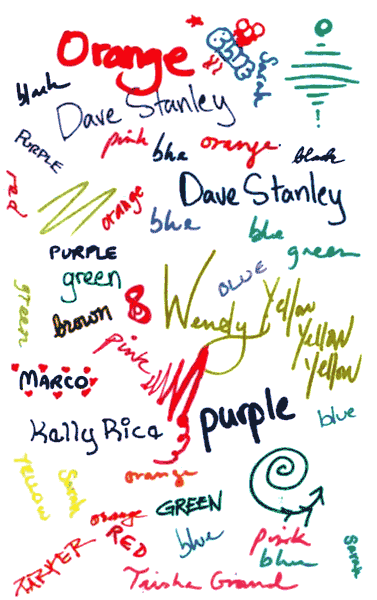 Orange
Sarah
black
Dave Stanley
PURPLE
pink
blue
orange
black
red
orange
Dave Stanley
blue
blue
green
PURPLE
green
BLUE
green
brown
8
Wendy
Yellow
Yellow
Yellow
pink
MARCO
Kelly Rice
purple
blue
Yellow
Sarah
orange
orange
GREEN
RED
blue
pink
blue
Sarah
PARKER
Trisha Girand